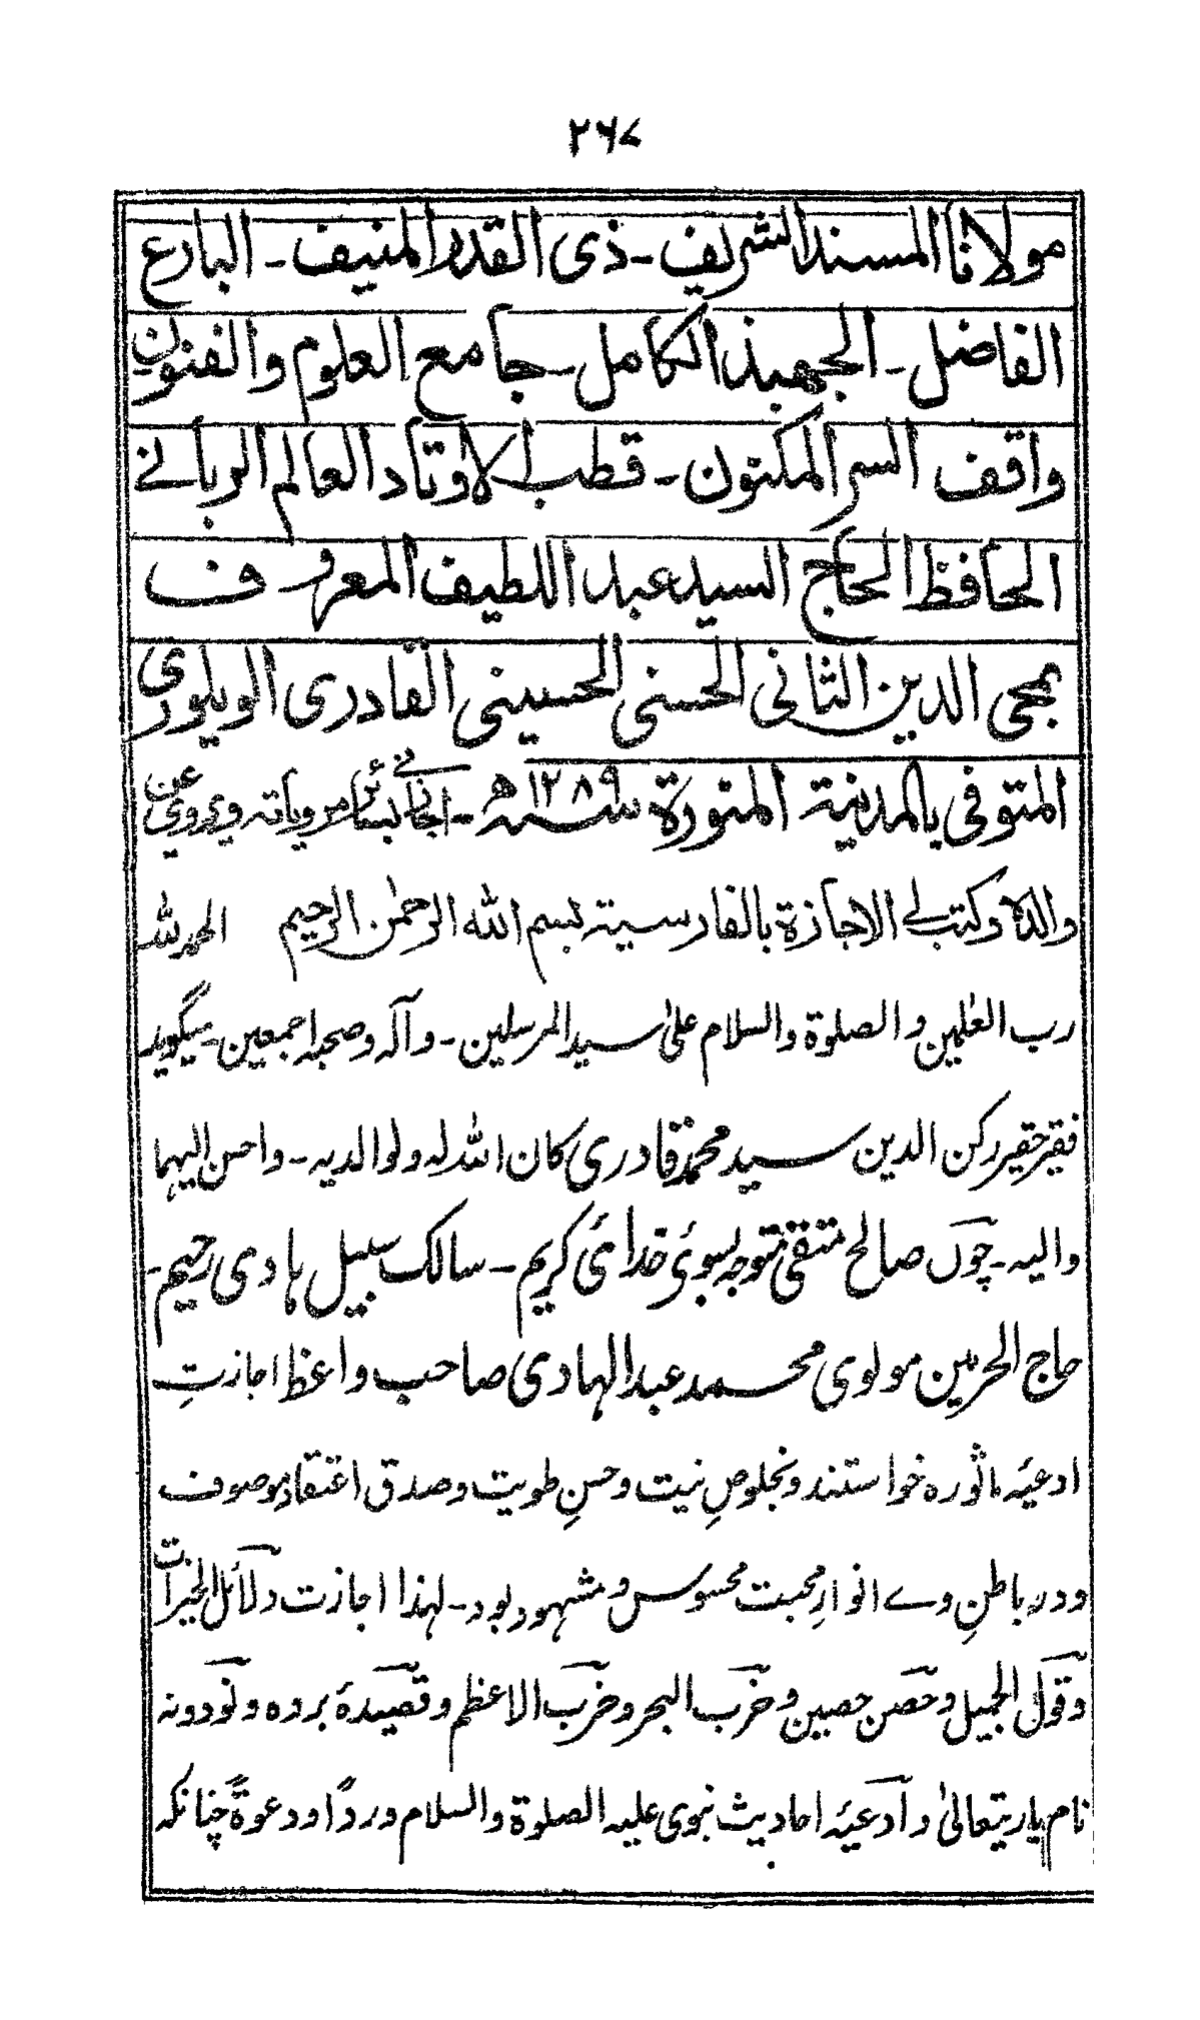 ۲۶۷
مولانا المسند الشریف ـ ذی القدر المنیف ـ البارع
الفاضل ـ الجهبذ الکامل ـ جامع العلوم والفنون
واقف السر المکنون ـ قطب الاوتاد العالم الربانے
الحافظ الحاج السید عبد اللطیف المعروف
بمحی الدین الثانی الحسنی الحسینی القادری الویلوری
المتوفی بالمدینة المنورة سنه ۱۲۸۹ ھ ـ اجازنے بسائر مرویاته ویروی عن
والده وکتب لے الاجازة بالفارسیة بسم الله الرحمٰن الرحیم الحمد لله
رب العٰلمین والصلوة والسلام علیٰ سید المرسلین ـ وآله وصحبه اجمعین ـ میگوید
فقیر حقیر رکن الدین سید محمد قادری کان الله له ولوالدیه ـ واحسن الیهما
والیه ـ چوں صالح متقی متوجه بسوئ خدائ کریم ـ سالک سبیل هادی رحیم ـ
حاج الحرمین مولوی محمد عبد الهادی صاحب واعظ اجازتِ
ادعیۂ ماثوره خواستند و بخلوصِ نیت و حسنِ طویت و صدق اعتقاد موصوف
و در باطنِ وے انوارِ محبت محسوس و مشهود بود ـ لهذا اجازت دلائل الخیرات
و قول الجمیل و حصن حصین و حزب البحر و حزب الاعظم و قصیدۂ برده و نود و نه
نام باریتعالیٰ و ادعیۂ احادیث نبوی علیه الصلوة والسلام وردًا و دعوةً چنانکه